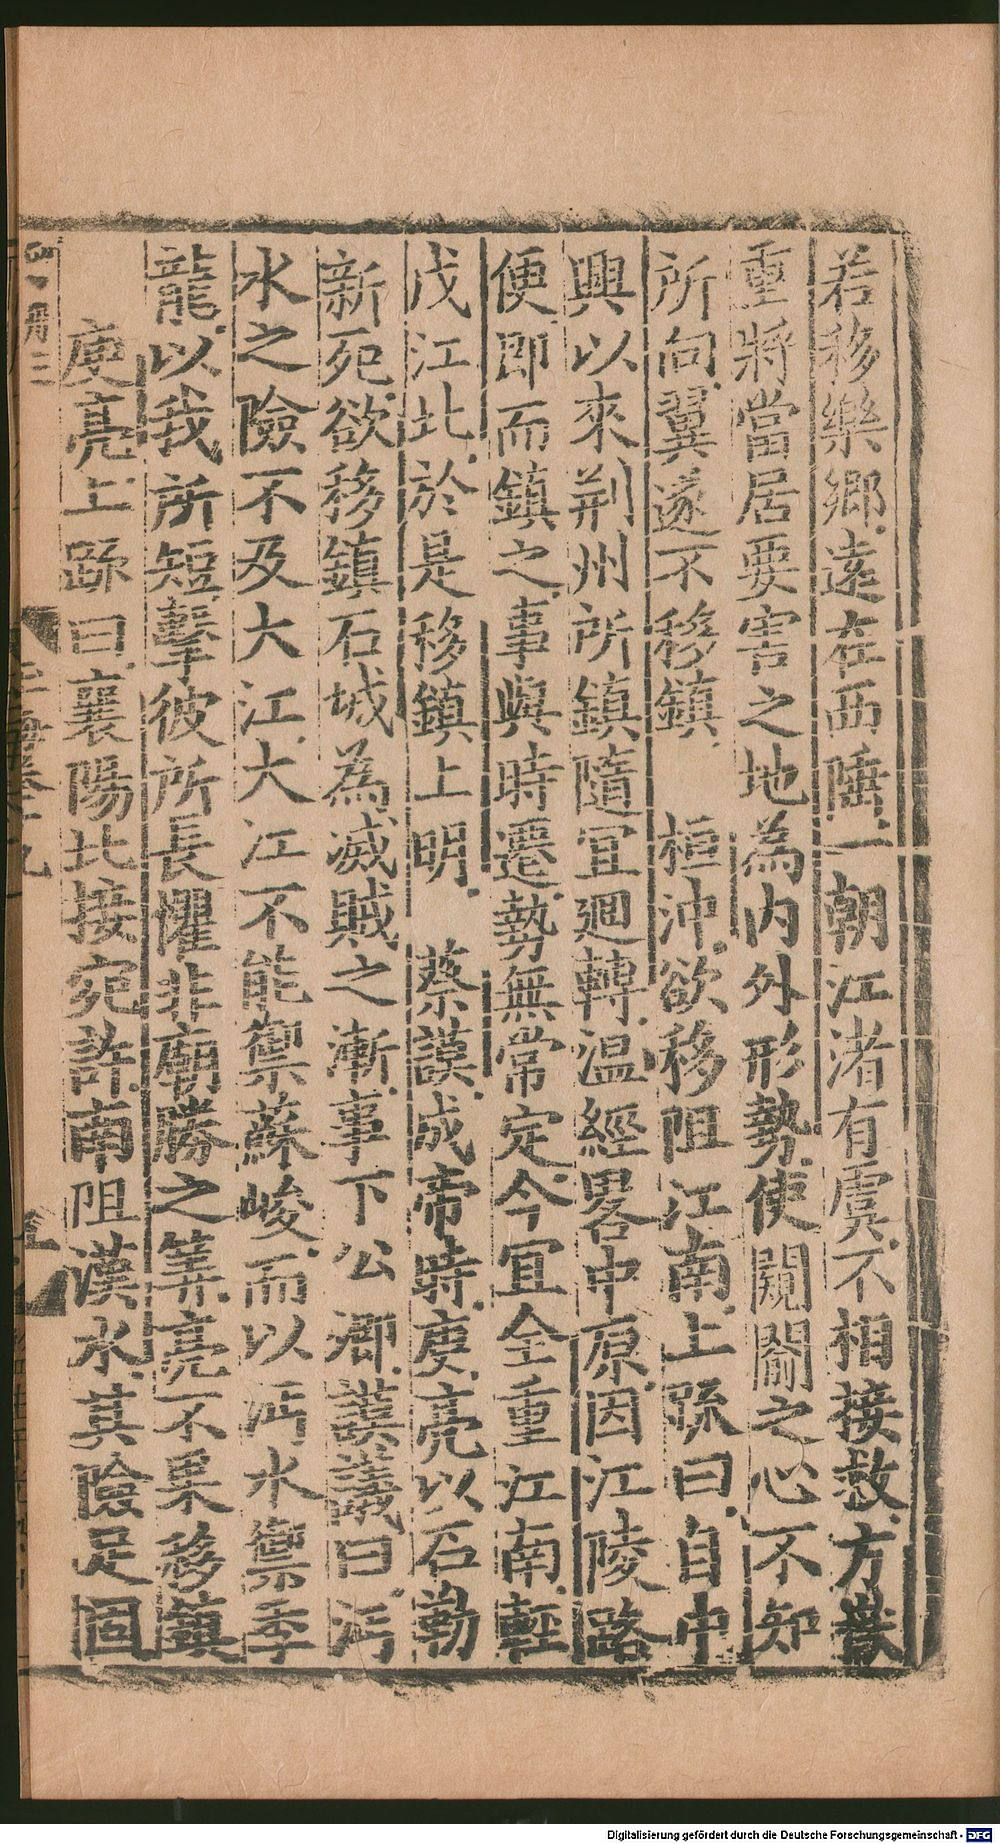 若移樂鄉遠在西陲一朝江渚有虞不相接救方嶽
重將當居要害之地為内外形勢使闚闒之心不知
所向翼遂不移鎮　桓沖欲移阻江南上疏曰自中
興以來荆州所鎮隨宜迴轉温經畧中原因江陵路
便即而鎮之事與時遷勢無常定今宜全重江南輕
戍江北於是移鎮上明　蔡謨成帝時庾亮以石勒
新死欲移鎮石城為滅賊之漸事下公卿謨議曰沔
水之險不及大江大江不能禦蘇峻而以沔水禦季
龍以我所短擊彼所長懼非廟勝之筭亮不果移鎮
庾亮上疏曰襄陽北接宛許南阻漢水其險足固
Digitalisierung gefördert durch die Deutsche Forschungsgemeinschaft - DFG